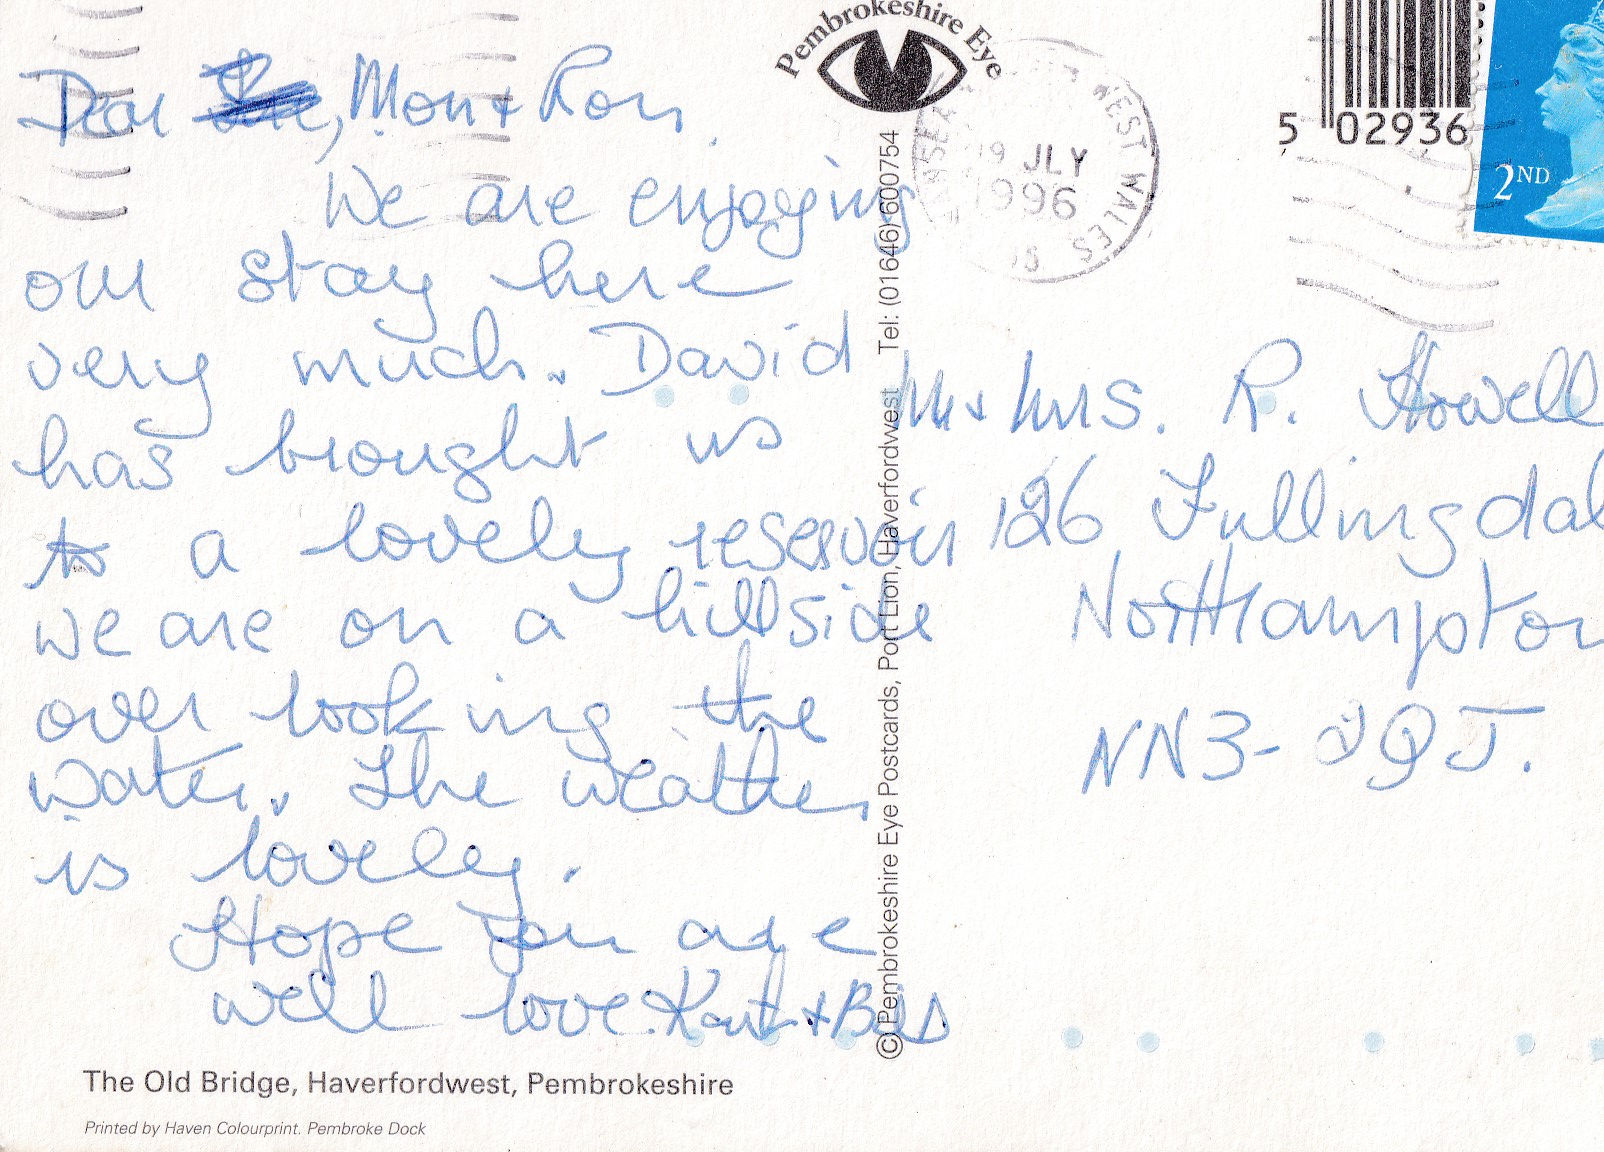 Dear Mon + Ron.
We are enjoying
our stay here
very much. David
has brought us
to a lovely reservoir
we are on a hillside
over looking the
water. The weather
is lovely.
Hope you are
well love
The Old Bridge, Haverfordwest, Pembrokeshire
Printed by Haven Colourprint. Pembroke Dock
Pembrokeshire Eye
© Pembrokeshire Eye Postcards, Port Lion, Haverfordwest Tel: (01646) 600754
WEST WALES
19 JLY
1996
5 02936
2ND
M + Mrs. R. Howell
126 Fullingdal
Northampton
NN3- 2QJ.